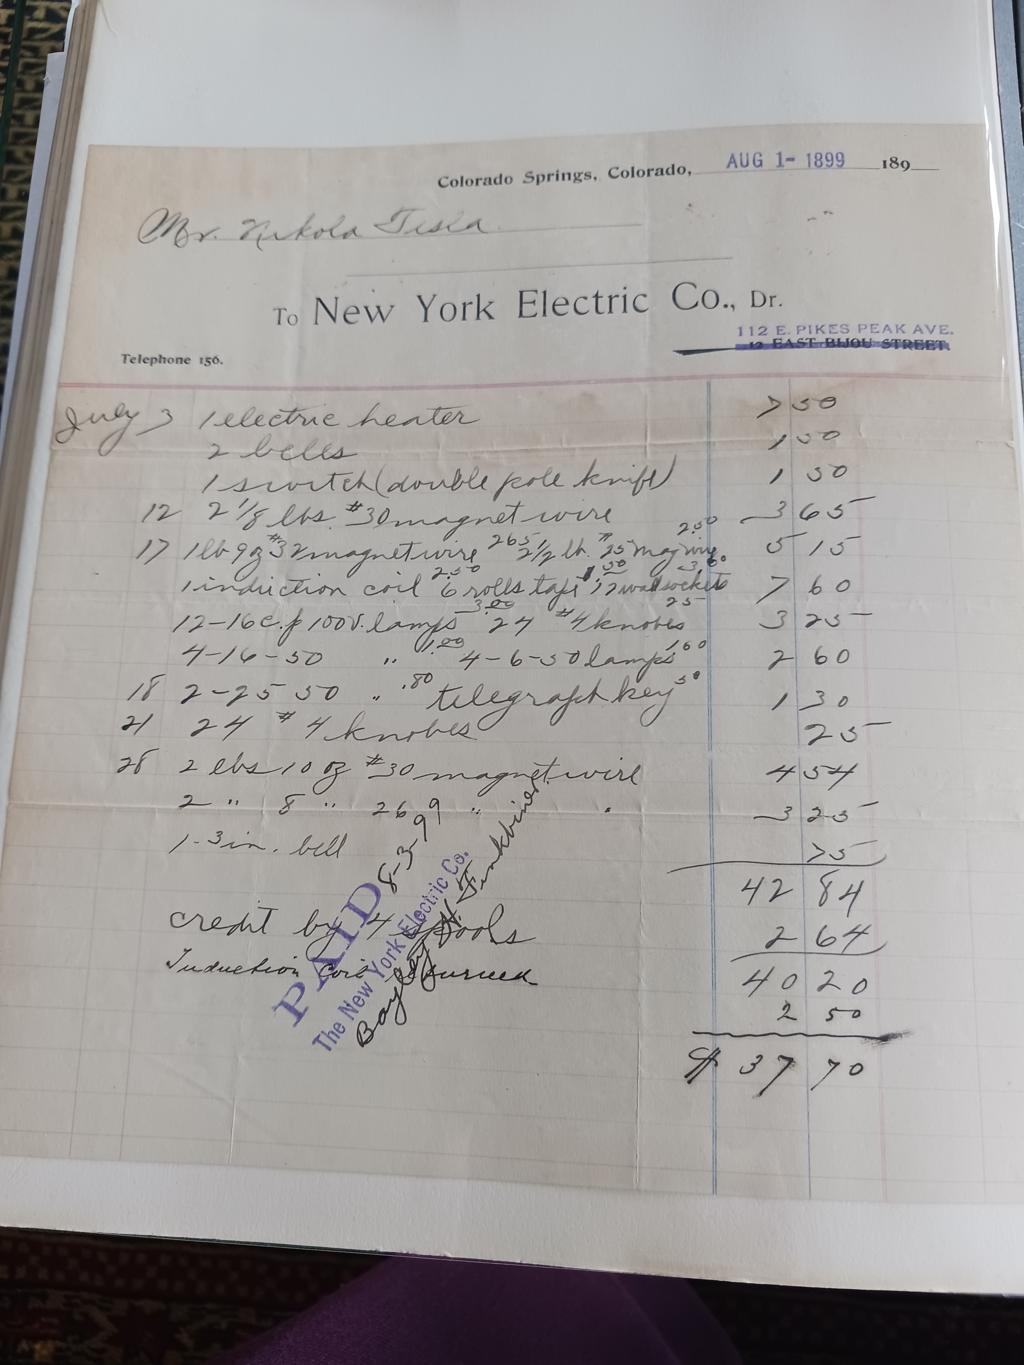 Colorado Springs, Colorado, AUG 1- 1899 189
Mr. Nikola Tesla
To New York Electric Co., Dr.
112 E. PIKES PEAK AVE.
12 EAST BIJOU STREET.
Telephone 156.
July 3 1 electric heater 7 50
2 bells 1 50
1 switch (double pole knife) 1 50
12 2 1/8 lbs. #30 magnet wire 3 65
17 1 lb 9 oz #32 magnet wire 265 2 1/2 lb. #25 mag wire 2.50 5 15
1 induction coil 2.50 6 rolls tape 1.50 12 wall sockets 3.60 7 60
12-16 c.p 100 V. lamps 3.00 24 #4 knobs 25 3 25
4-16-50 " 1.00 4-6-50 lamps 1.60 2 60
18 2-25 50 " .80 telegraph key 50 1 30
21 24 #4 knobs 25
28 2 lbs 10 oz #30 magnet wire 4 54
2 " 8 " 26 " " 3 25
1-3 in. bell 75
42 84
credit by 4 spools 2 64
40 20
Induction Coil returned 2 50
$ 37 70
PAID 8-3-99
The New York Electric Co.
Bayley